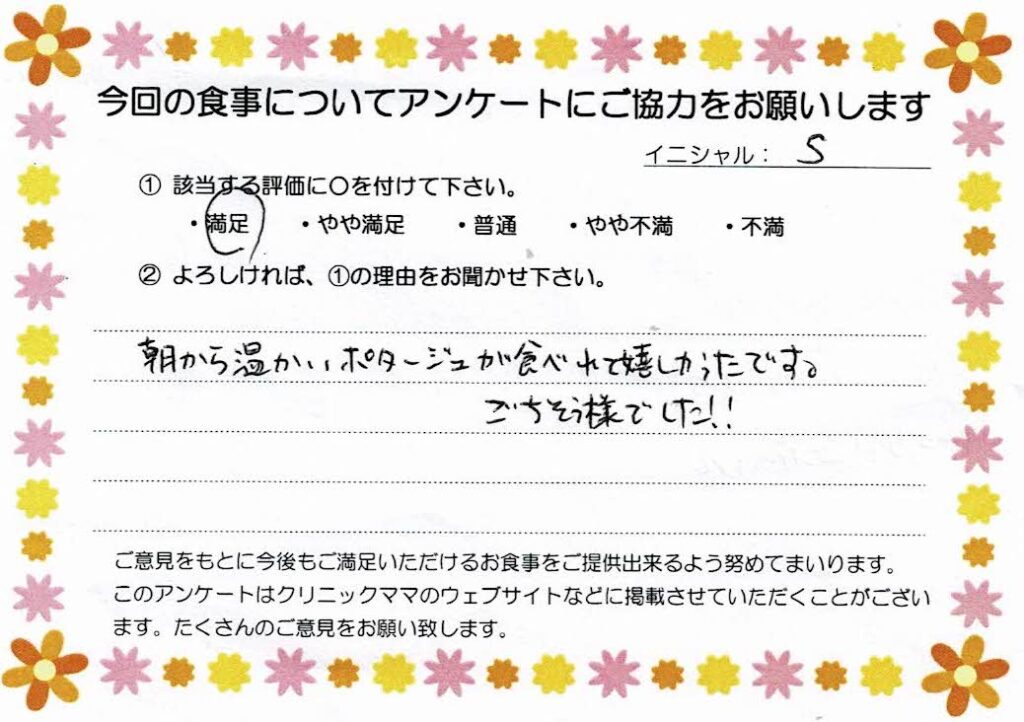 今回の食事についてアンケートにご協力をお願いします
イニシャル： S
① 該当する評価に〇を付けて下さい。
・満足 ・やや満足 ・普通 ・やや不満 ・不満
② よろしければ、①の理由をお聞かせ下さい。
朝から温かいポタージュが食べれて嬉しかったです。
ごちそう様でした!!
ご意見をもとに今後もご満足いただけるお食事をご提供出来るよう努めてまいります。
このアンケートはクリニックママのウェブサイトなどに掲載させていただくことがござい
ます。たくさんのご意見をお願い致します。